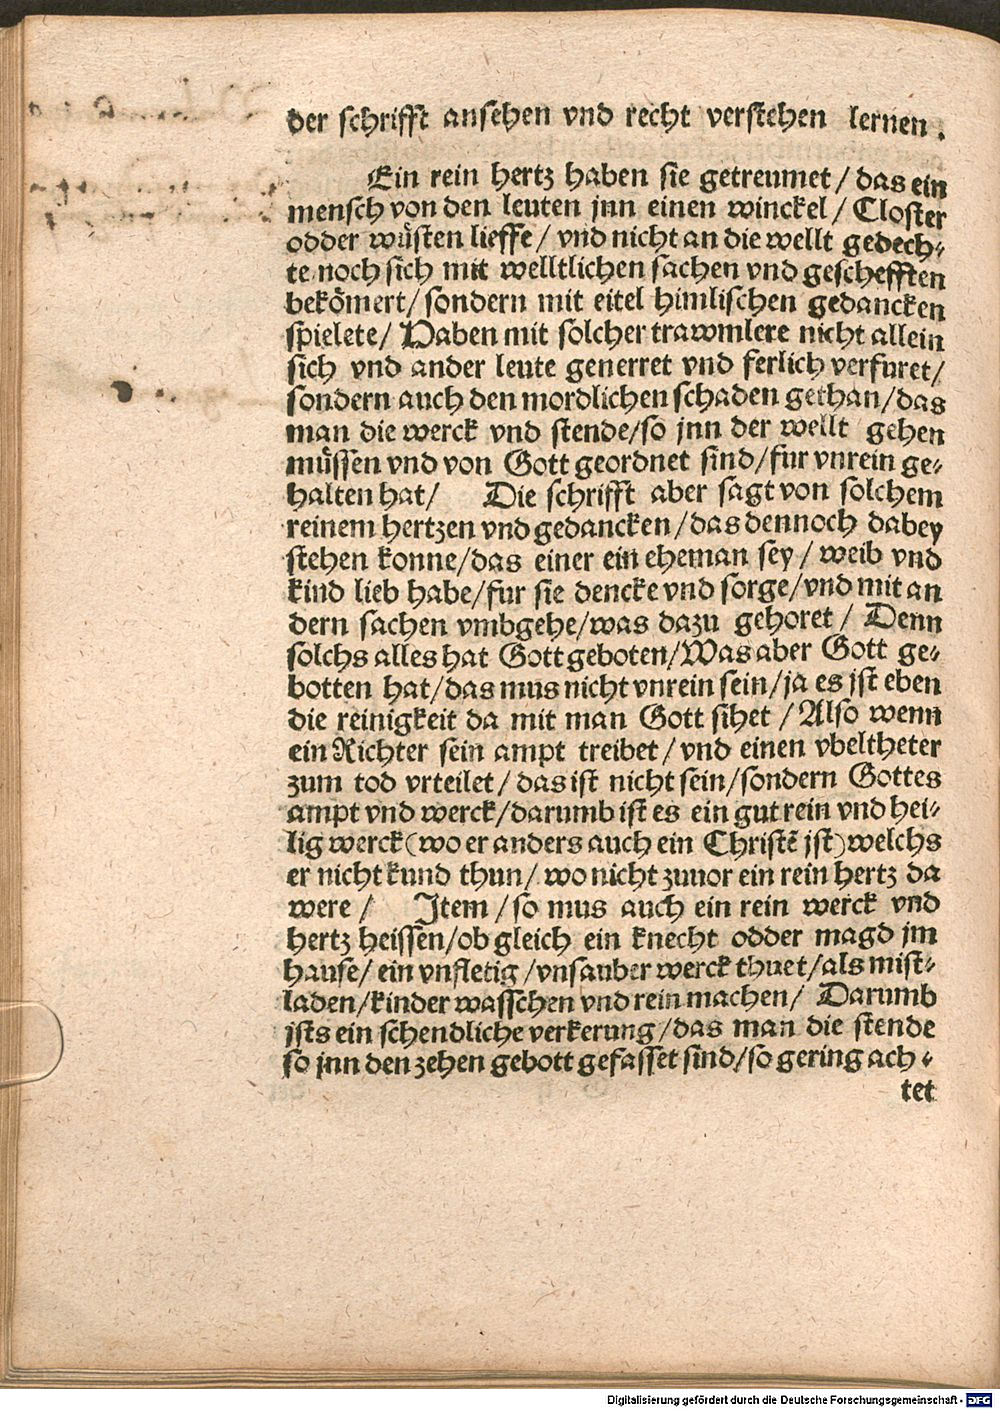 der schrifft ansehen vnd recht verstehen lernen.
Ein rein hertz haben sie getreumet / das ein
mensch von den leuten jnn einen winckel / Closter
odder wüsten lieffe / vnd nicht an die wellt gedech⸗
te noch sich mit welltlichen sachen vnd geschefften
bekōmert / sondern mit eitel himlischen gedancken
spielete / Haben mit solcher trawmlere nicht allein
sich vnd ander leute generret vnd ferlich verfuret /
sondern auch den mordlichen schaden gethan / das
man die werck vnd stende / so jnn der wellt gehen
müssen vnd von Gott geordnet sind / fur vnrein ge⸗
halten hat / Die schrifft aber sagt von solchem
reinem hertzen vnd gedancken / das dennoch dabey
stehen konne / das einer ein eheman sey / weib vnd
kind lieb habe / fur sie dencke vnd sorge / vnd mit an
dern sachen vmbgehe / was dazu gehoret / Denn
solchs alles hat Gott geboten / Was aber Gott ge⸗
botten hat / das mus nicht vnrein sein / ja es jst eben
die reinigkeit da mit man Gott sihet / Also wenn
ein Richter sein ampt treibet / vnd einen vbeltheter
zum tod vrteilet / das ist nicht sein / sondern Gottes
ampt vnd werck / darumb ist es ein gut rein vnd hei⸗
lig werck (wo er anders auch ein Christē jst) welchs
er nicht kund thun / wo nicht zuuor ein rein hertz da
were / Item / so mus auch ein rein werck vnd
hertz heissen / ob gleich ein knecht odder magd jm
hause / ein vnfletig / vnsauber werck thuet / als mist⸗
laden / kinder wasschen vnd rein machen / Darumb
jsts ein schendliche verkerung / das man die stende
so jnn den zehen gebott gefasset sind / so gering ach⸗
tet
Digitalisierung gefördert durch die Deutsche Forschungsgemeinschaft - DFG